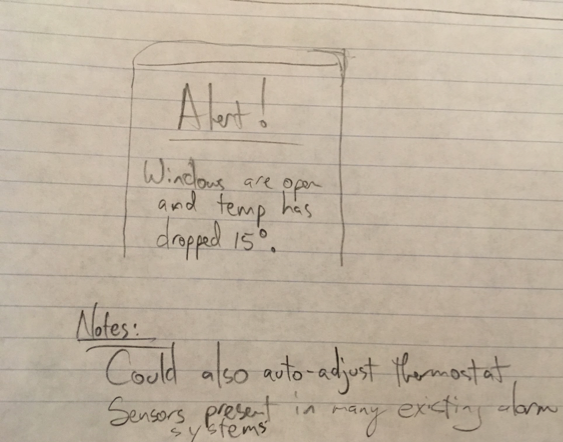 Alert!
Windows are open
and temp has
dropped 15°.
Notes:
Could also auto-adjust thermostat
Sensors present in many existing alarm
systems